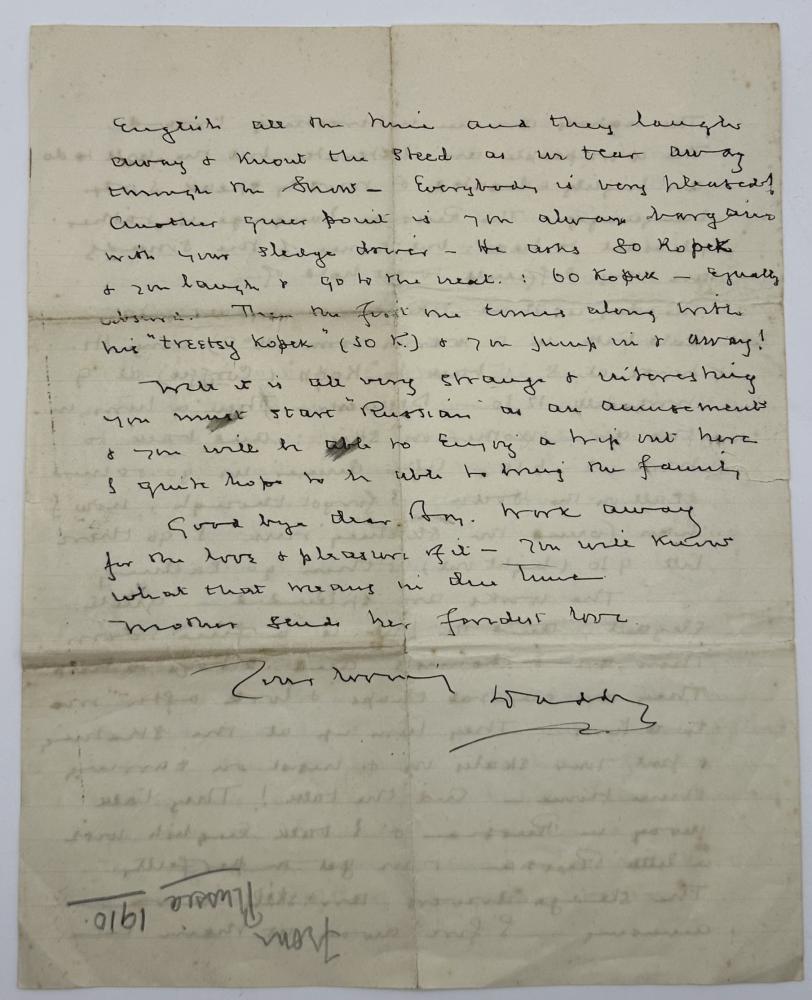 English all the time and they laugh
away & Knout the steed as we tear away
through the Snow – Everybody is very pleased!
Another queer point is you always bargain
with your sledge driver – He asks 80 Kopek
& you laugh & go to the next. : 60 Kopek – Equally
absurd. Then the first one comes along with
his "treetsy Kopek" (30 K) & you jump in & away!
Well it is all very strange & interesting
you must start "Russian" as an amusement
& you will be able to Enjoy a trip out here
I quite hope to be able to bring the family
Good bye dear Boy. Work away
for the love & pleasure of it – you will Know
what that means in due time
Mother sends her fondest love
Your loving
Daddy
From
Russia
1910.